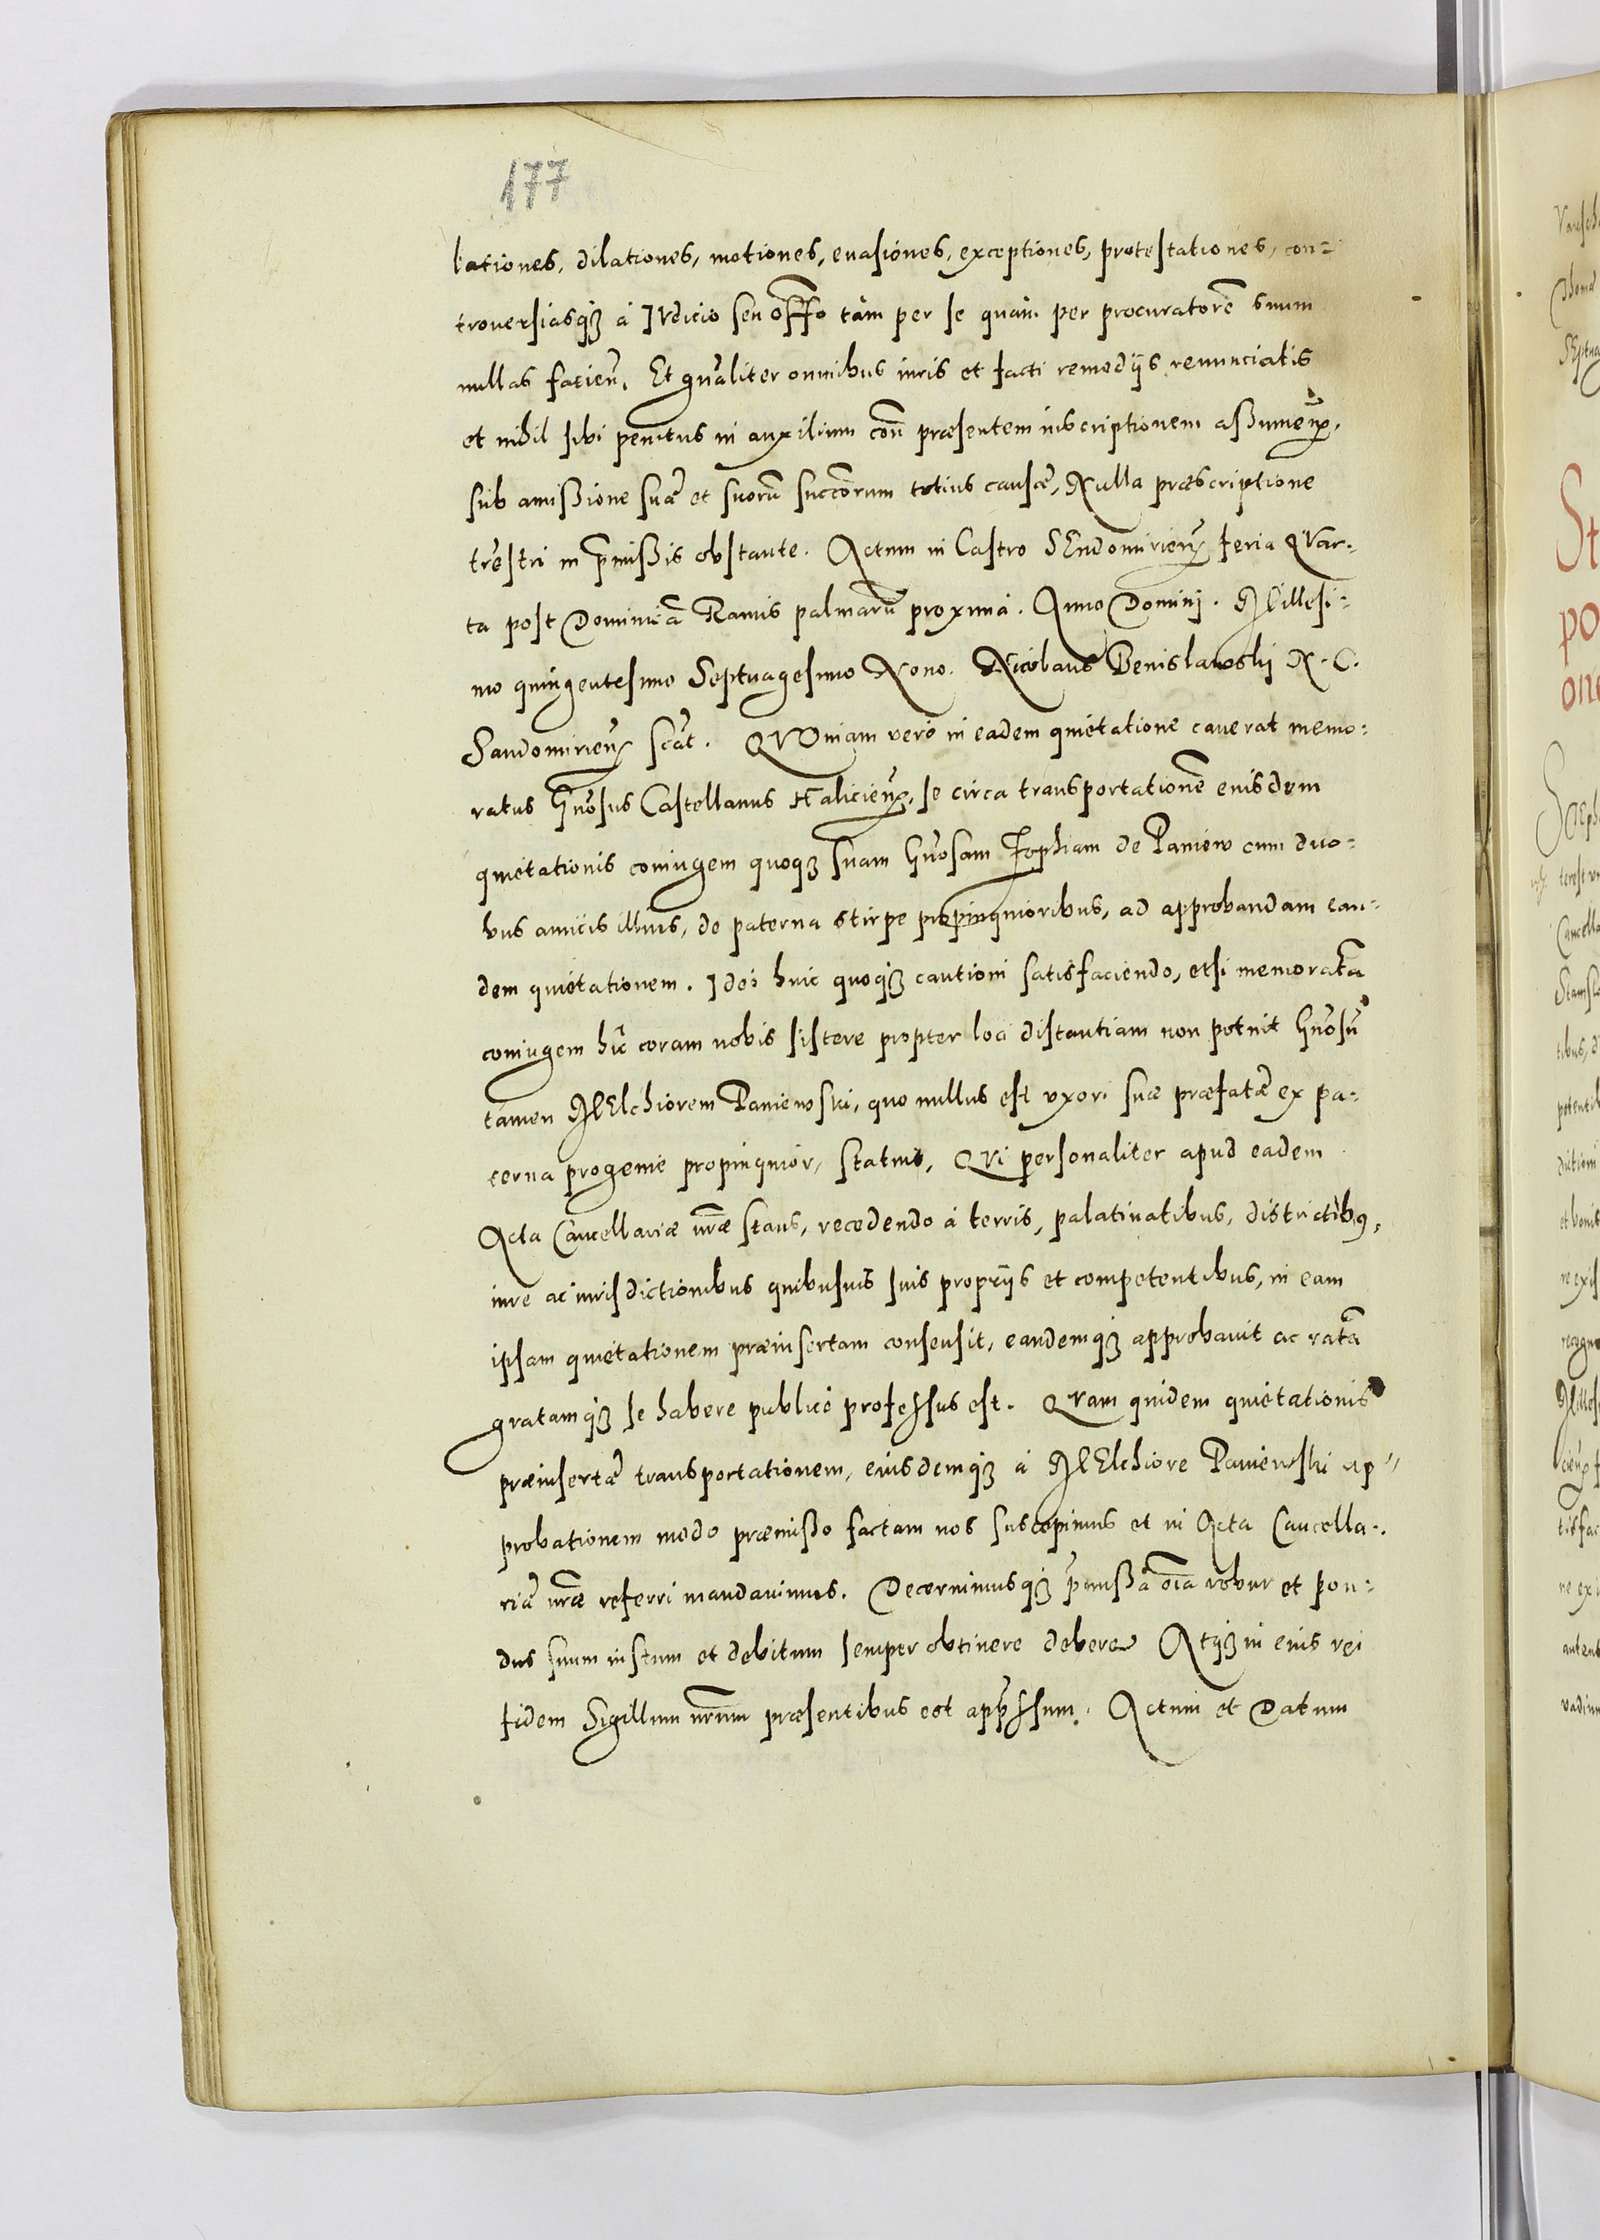 177
lationes, dilationes, motiones, euasiones, exceptiones, protestationes, con=
trouersiasqȝ à IVdicio seu offo tàm per se quàm per procuratorē suum
nullas facien̄. Et gn̄aliter omnibus iuris et facti remedijs renunciatis
et nihil sibi penitus in auxilium con̄ præsentem inscriptionem aßumen̄.
sub amißione suæ et suorū succorum totius causæ, Nulla præscriptione
tr̄estri in p̄mißis obstante. Actum in Castro SEndomirien̄ feria QVar=
ta post Dominicā Ramis palmarū proxima. Anno Domini. Millesi=
mo quingentesimo Septuagesimo Nono. Nicolaus Benislawski N. C.
Sandomirien̄ scāt. QVOniam verò in eadem quietatione cauerat memo=
ratus Gn̄osus Castellanus Halicien̄, se circa transportationē eiusdem
quietationis coniugem quoqȝ suam Gn̄osam Zophiam de Paniew cum duo=
bus amicis illius, de paterna stirpe propinquioribus, ad approbandam ean=
dem quietationem. Ideò huic quoqȝ cautioni satisfaciendo, etsi memoratā
coniugem hûc coram nobis sistere propter loci distantiam non potuit Gn̄osū
tamen MElchiorem Paniewski, quo nullus est vxori suæ præfatæ ex pa=
terna progenie propinquior, statuit, QVi personaliter apud eadem
Acta Cancellariæ nr̄æ stans, recedendo à terris, palatinatibus, districtibꝯ,
iure ac iurisdictionibus quibusuis suis proprijs et competentibus, in eam
ipsam quietationem præinsertam consensit, eandemqȝ approbauit ac ratā
gratamqȝ se habere publicè professus est. QVam quidem quietationis
præinsertæ transportationem, eiusdemqȝ à MElchiore Paniewski ap=
probationem modo præmißo factam nos suscepimus et in Acta Cancella=
riæ nr̄æ referri mandauimus. Decernimusqȝ p̄mißa oīa robur et pon=
dus suum iustum et debitum semper obtinere debere. Atqȝ in eius rei
fidem Sigillum nr̄um præsentibus est app̄ssum. Actum et Datum